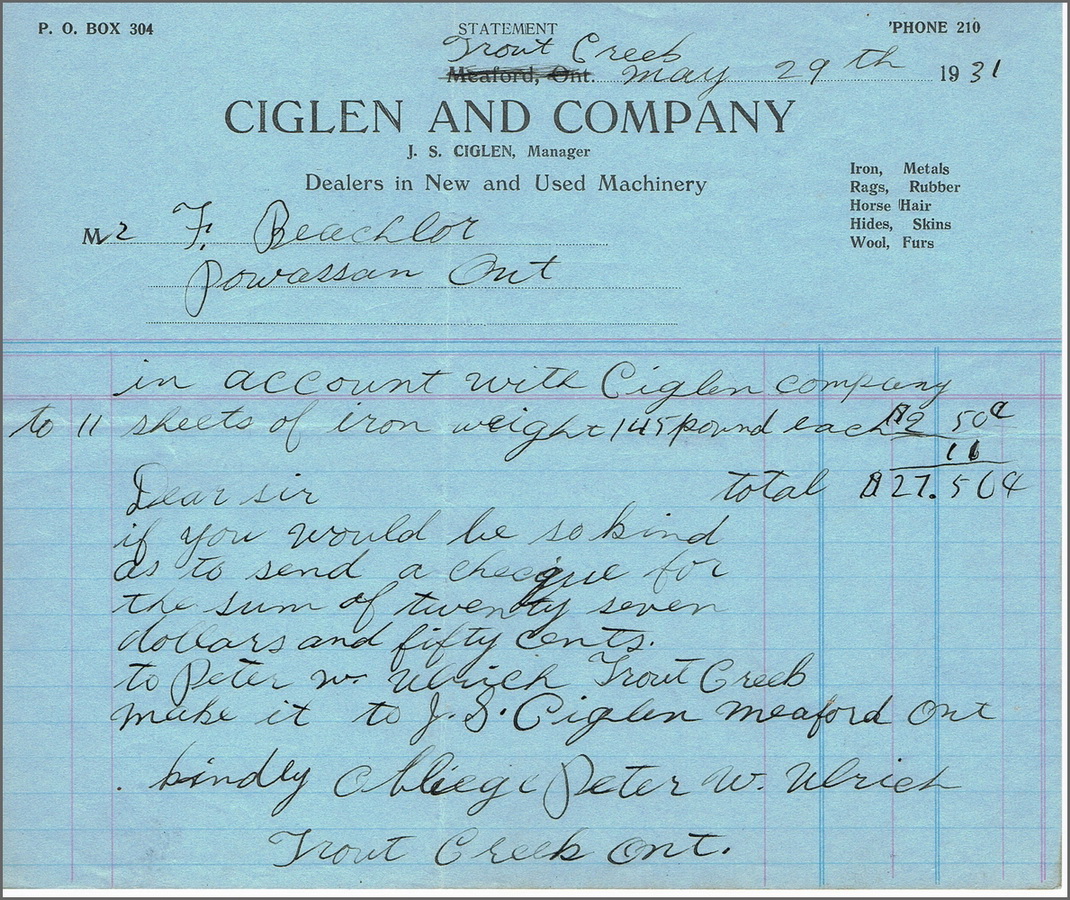 P. O. BOX 304 STATEMENT 'PHONE 210
Trout Creek
Meaford, Ont. May 29th 1931
CIGLEN AND COMPANY
J. S. CIGLEN, Manager
Dealers in New and Used Machinery
Iron, Metals
Rags, Rubber
Horse Hair
Hides, Skins
Wool, Furs
Mr F. Beachlor
Powassan Ont
in account with Ciglen company
to 11 sheets of iron weight 145 pound each $2 50¢
11
total $27.50¢
Dear sir
if you would be so kind
as to send a checque for
the sum of twenty seven
dollars and fifty cents.
to Peter W. Ulrich Trout Creek
make it to J. S. Ciglen Meaford Ont
kindly obliege Peter W. Ulrich
Trout Creek Ont.